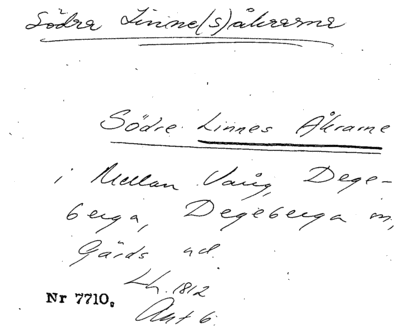 Södra Linne(s)åkrarna
Södre Linnes Åkrarne
i Mellan Vång, Dege-
berga, Degeberga sn,
Gärds hd.
Lh. 1812
Akt 6.
Nr 7710.